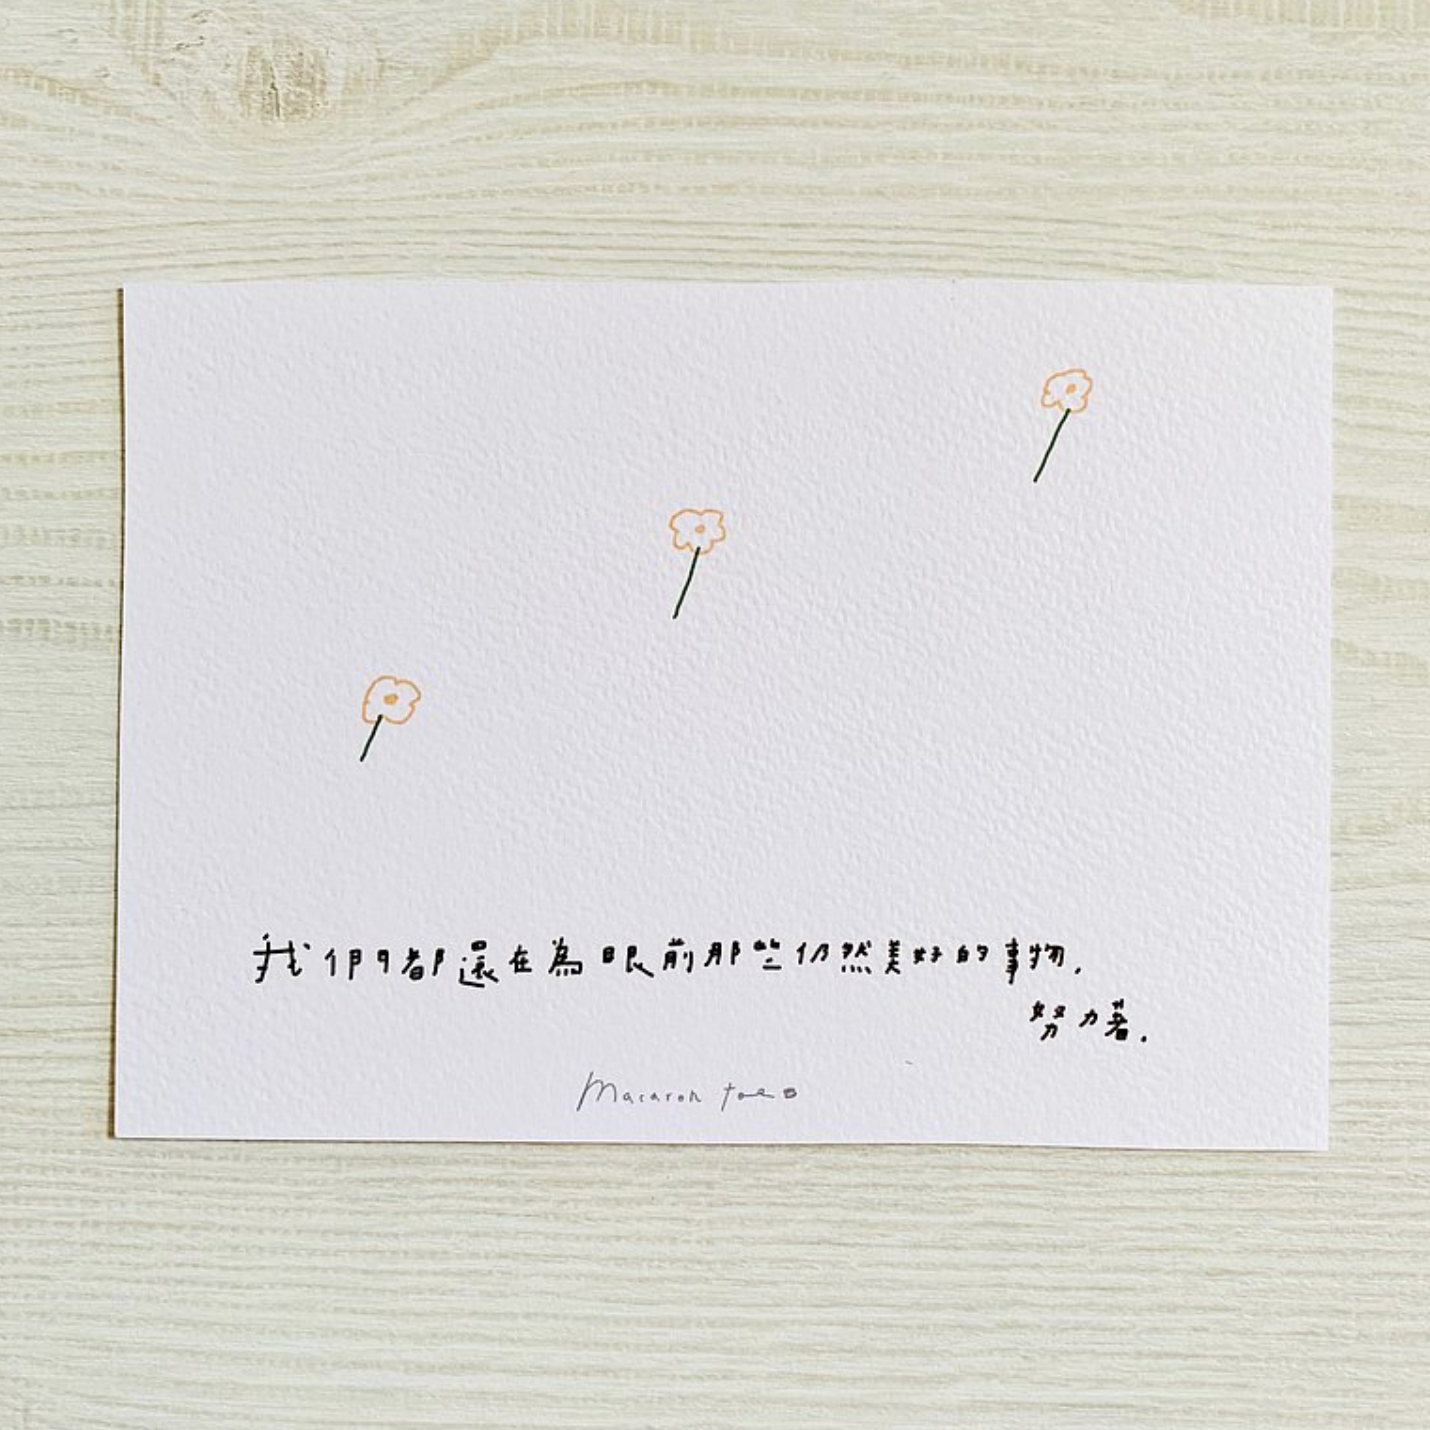 我們都還在為眼前那些仍然美好的事物.
努力著.
Macaron toe